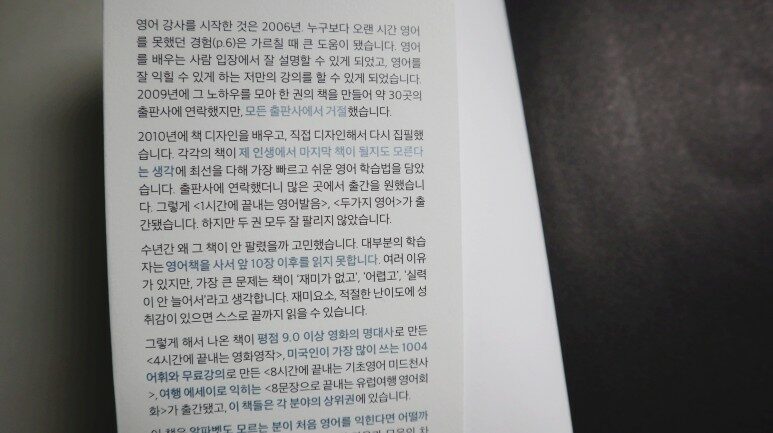 영어 강사를 시작한 것은 2006년. 누구보다 오랜 시간 영어
를 못했던 경험(p.6)은 가르칠 때 큰 도움이 됐습니다. 영어
를 배우는 사람 입장에서 잘 설명할 수 있게 되었고, 영어를
잘 익힐 수 있게 하는 저만의 강의를 할 수 있게 되었습니다.
2009년에 그 노하우를 모아 한 권의 책을 만들어 약 30곳의
출판사에 연락했지만, 모든 출판사에서 거절했습니다.
2010년에 책 디자인을 배우고, 직접 디자인해서 다시 집필했
습니다. 각각의 책이 제 인생에서 마지막 책이 될지도 모른다
는 생각에 최선을 다해 가장 빠르고 쉬운 영어 학습법을 담았
습니다. 출판사에 연락했더니 많은 곳에서 출간을 원했습니
다. 그렇게 <1시간에 끝내는 영어발음>, <두가지 영어>가 출
간됐습니다. 하지만 두 권 모두 잘 팔리지 않았습니다.
수년간 왜 그 책이 안 팔렸을까 고민했습니다. 대부분의 학습
자는 영어책을 사서 앞 10장 이후를 읽지 못합니다. 여러 이유
가 있지만, 가장 큰 문제는 책이 '재미가 없고', '어렵고', '실력
이 안 늘어서'라고 생각합니다. 재미요소, 적절한 난이도에 성
취감이 있으면 스스로 끝까지 읽을 수 있습니다.
그렇게 해서 나온 책이 평점 9.0 이상 영화의 명대사로 만든
<4시간에 끝내는 영화영작>, 미국인이 가장 많이 쓰는 1004
어휘와 무료강의로 만든 <8시간에 끝내는 기초영어 미드천사
>, 여행 에세이로 익히는 <8문장으로 끝내는 유럽여행 영어회
화>가 출간됐고, 이 책들은 각 분야의 상위권에 있습니다.
이 책은 알파벳도 모르는 분이 처음 영어를 익한다면 어떨까